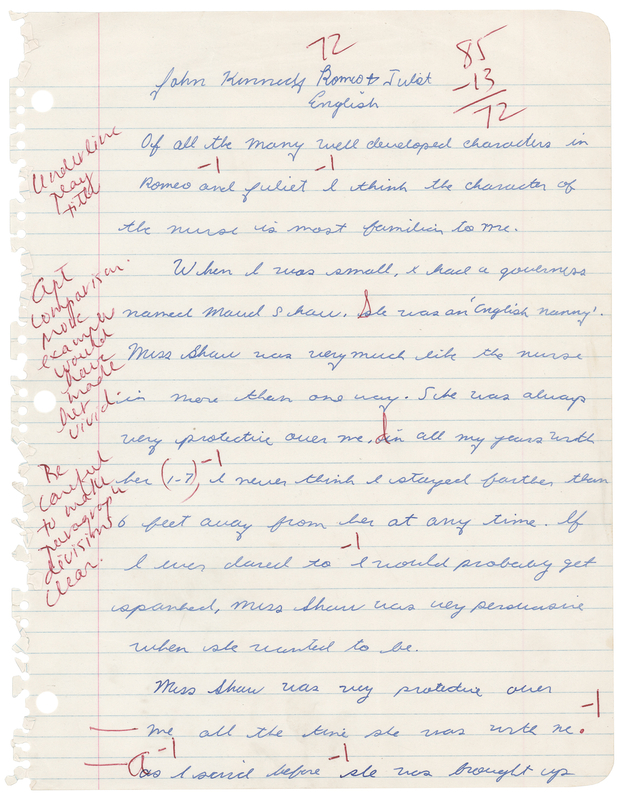 72
85
-13
72
John Kennedy Romeo & Juliet
English
Underline play title
Of all the many well developed characters in
-1 -1
Romeo and Juliet I think the character of
the nurse is most familiar to me.
When I was small, I had a governess
Apt comparison. More examples would have made her vivid
named Maud Shaw. She was an 'English nanny'.
Miss Shaw was very much like the nurse
in more than one way. She was always
very protective over me. In all my years with
Be careful to make paragraph divisions clear.
her (1-7) -1 I never think I stayed farther than
6 feet away from her at any time. If
-1
I ever dared to I would probably get
spanked, Miss Shaw was very persuasive
when she wanted to be.
Miss Shaw was very protective over
-1
me all the time she was with me.
-1 -1
As I said before she was brought up